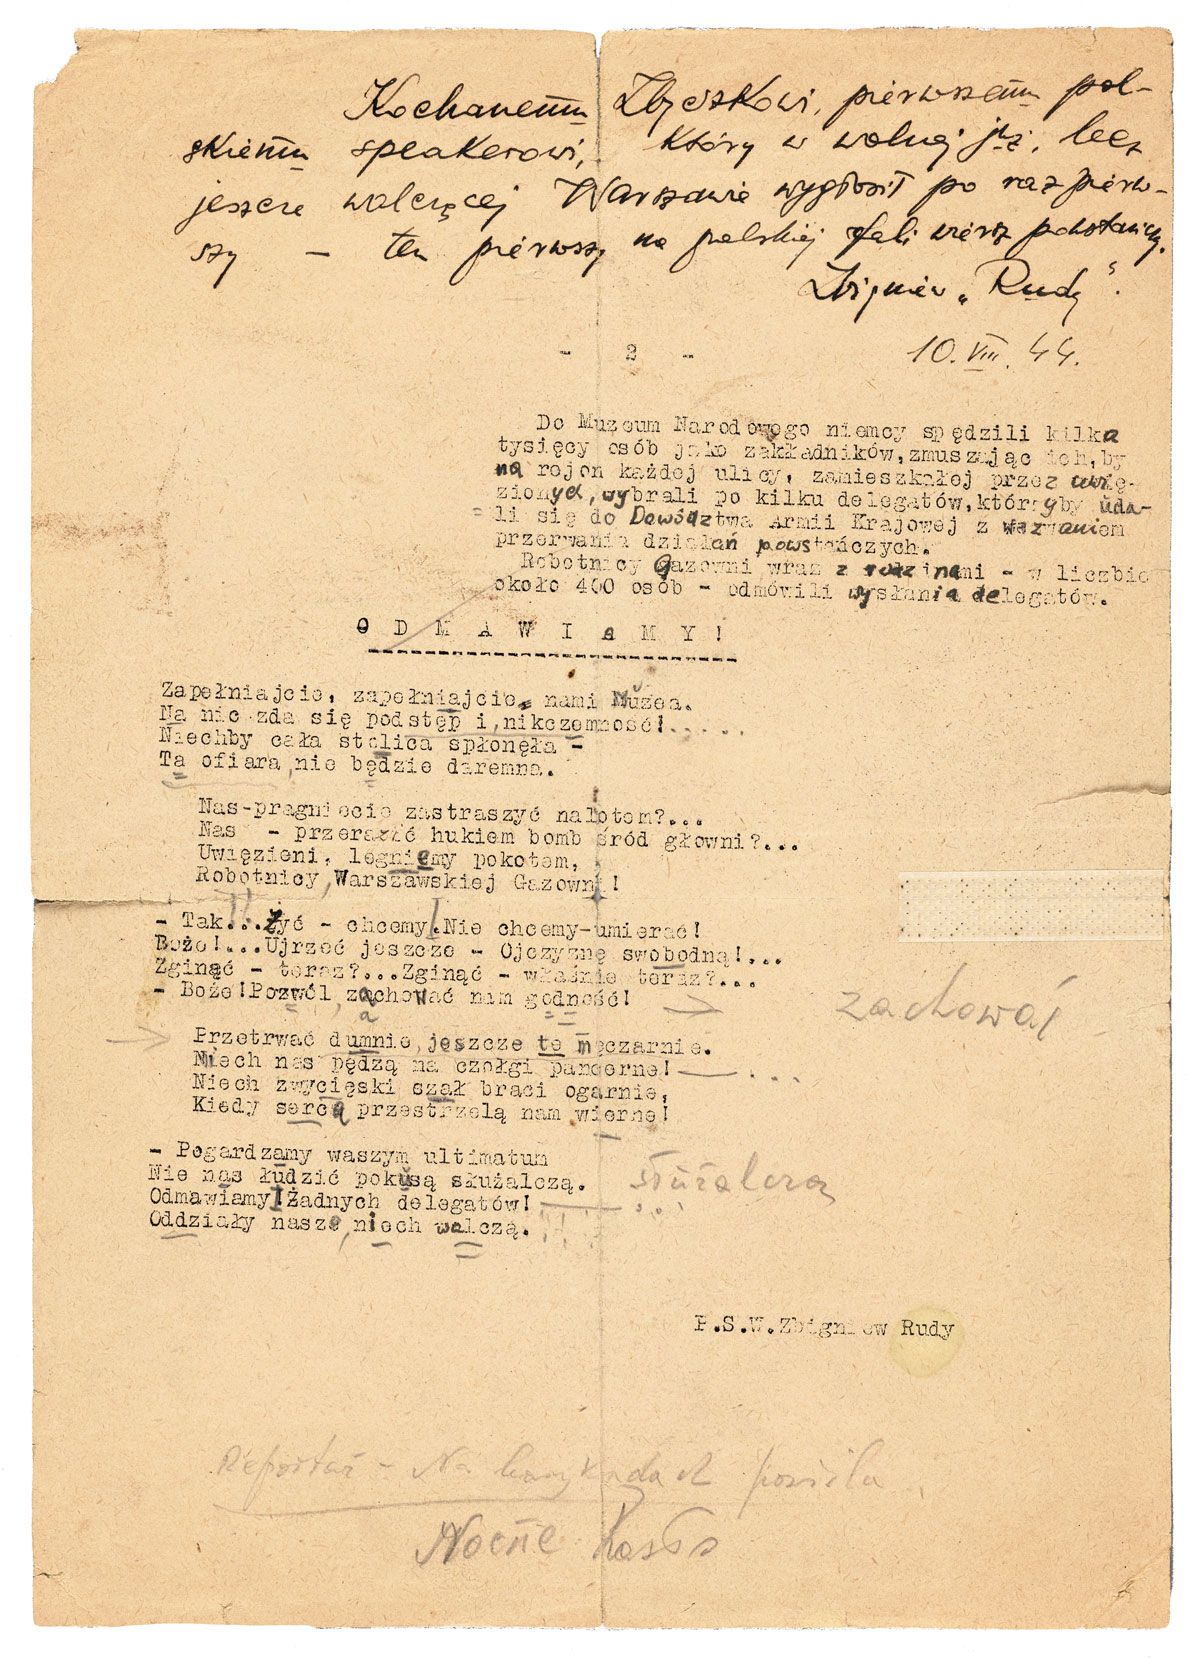 Kochanemu Zbyszkowi, pierwszemu pol-
skiemu speakerowi, który w wolnej już, lecz
jeszcze walczącej Warszawie wygłosił po raz pierw-
szy – ten pierwszy na polskiej fali wiersz powstańczy.
Zbigniew „Rudy".
10.VIII.44.
- 2 -
Do Muzeum Narodowego niemcy spędzili kilka
tysięcy osób jako zakładników,zmuszając ich,by
na rejon każdej ulicy, zamieszkałej przez uwię-
zionych, wybrali po kilku delegatów,którzyby uda-
li się do Dowództwa Armii Krajowej z wezwaniem
przerwania działań powstańczych.
Robotnicy Gazowni wraz z rodzinami - w liczbie
około 400 osób - odmówili wysłania delegatów.
O D M A W I A M Y !
Zapełniajcie, zapełniajcie nami Muzea.
Na nic zda się podstęp i nikczemność!.....
Niechby cała stolica spłonęła -
Ta ofiara nie będzie daremna.
Nas-pragniecie zastraszyć nalotem?...
Nas - przerazić hukiem bomb śród głowni?...
Uwięzieni, legniemy pokotem,
Robotnicy Warszawskiej Gazowni!
- Tak...Żyć - chcemy!.Nie chcemy-umierać!
Boże!...Ujrzeć jeszcze - Ojczyznę swobodną!...
Zginąć - teraz?...Zginąć - właśnie teraz?...
- Boże!Pozwól zachować nam godność!
zachować
Przetrwać dumnie jeszcze te męczarnie.
Niech nas pędzą na czołgi pancerne! ...
Niech zwycięski szał braci ogarnie,
Kiedy serca przestrzelą nam wierne!
- Pogardzamy waszym ultimatum
Nie nas łudzić pokusą służalczą.
służalczą
Odmawiamy!Żadnych delegatów!
Oddziały nasze, niech walczą.
P.S.W.Zbigniew Rudy
Reportaż - Na barykadach
Nocne